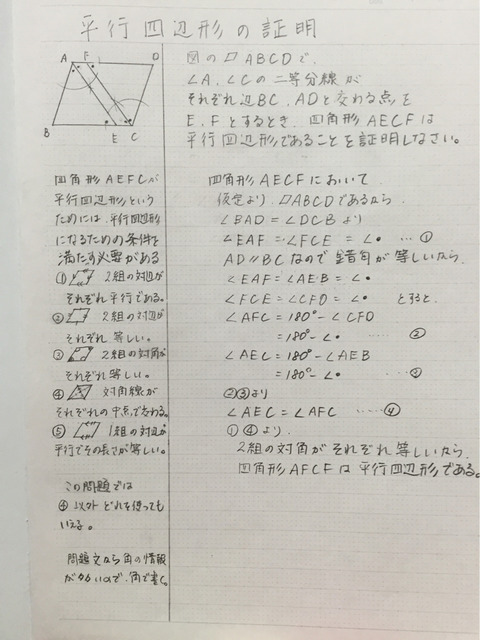 平行四辺形の証明
A F D
B E C
図の▱ABCDで、
∠A、∠Cの二等分線が
それぞれ辺BC、ADと交わる点を
E、Fとするとき、四角形AECFは
平行四辺形であることを証明しなさい。
四角形AEFCが
平行四辺形という
ためには、平行四辺形
になるための条件を
満たす必要がある
① 2組の対辺が
それぞれ平行である。
② 2組の対辺が
それぞれ等しい。
③ 2組の対角が
それぞれ等しい。
④ 対角線が
それぞれの中点で交わる。
⑤ 1組の対辺が
平行でその長さが等しい。
この問題では
④以外どれを使っても
いえる。
問題文から角の情報
が多いので、角で書く。
四角形AECFにおいて
仮定より、▱ABCDであるから
∠BAD=∠DCBより
∠EAF=∠FCE=∠• …①
AD//BCなので錯角が等しいから
∠EAF=∠AEB=∠•
∠FCE=∠CFD=∠• とすると、
∠AFC=180°-∠CFD
=180°-∠• ……②
∠AEC=180°-∠AEB
=180°-∠• ……③
②③より
∠AEC=∠AFC ……④
①④より、
2組の対角がそれぞれ等しいから
四角形AFCFは平行四辺形である。